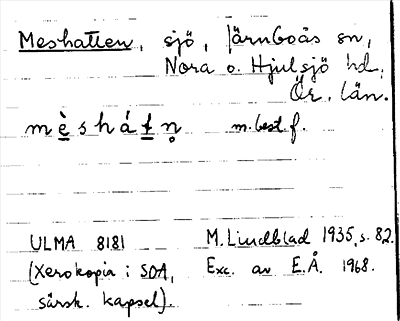 Meshatten, sjö, Järnboås sn,
Nora o. Hjulsjö hd,
Ör. län.
mèshátn̥ m. best. f.
ULMA 8181 M. Lindblad 1935, s. 82.
(Xerokopia i SOA, Exc. av E.Å. 1968.
särsk. kapsel).